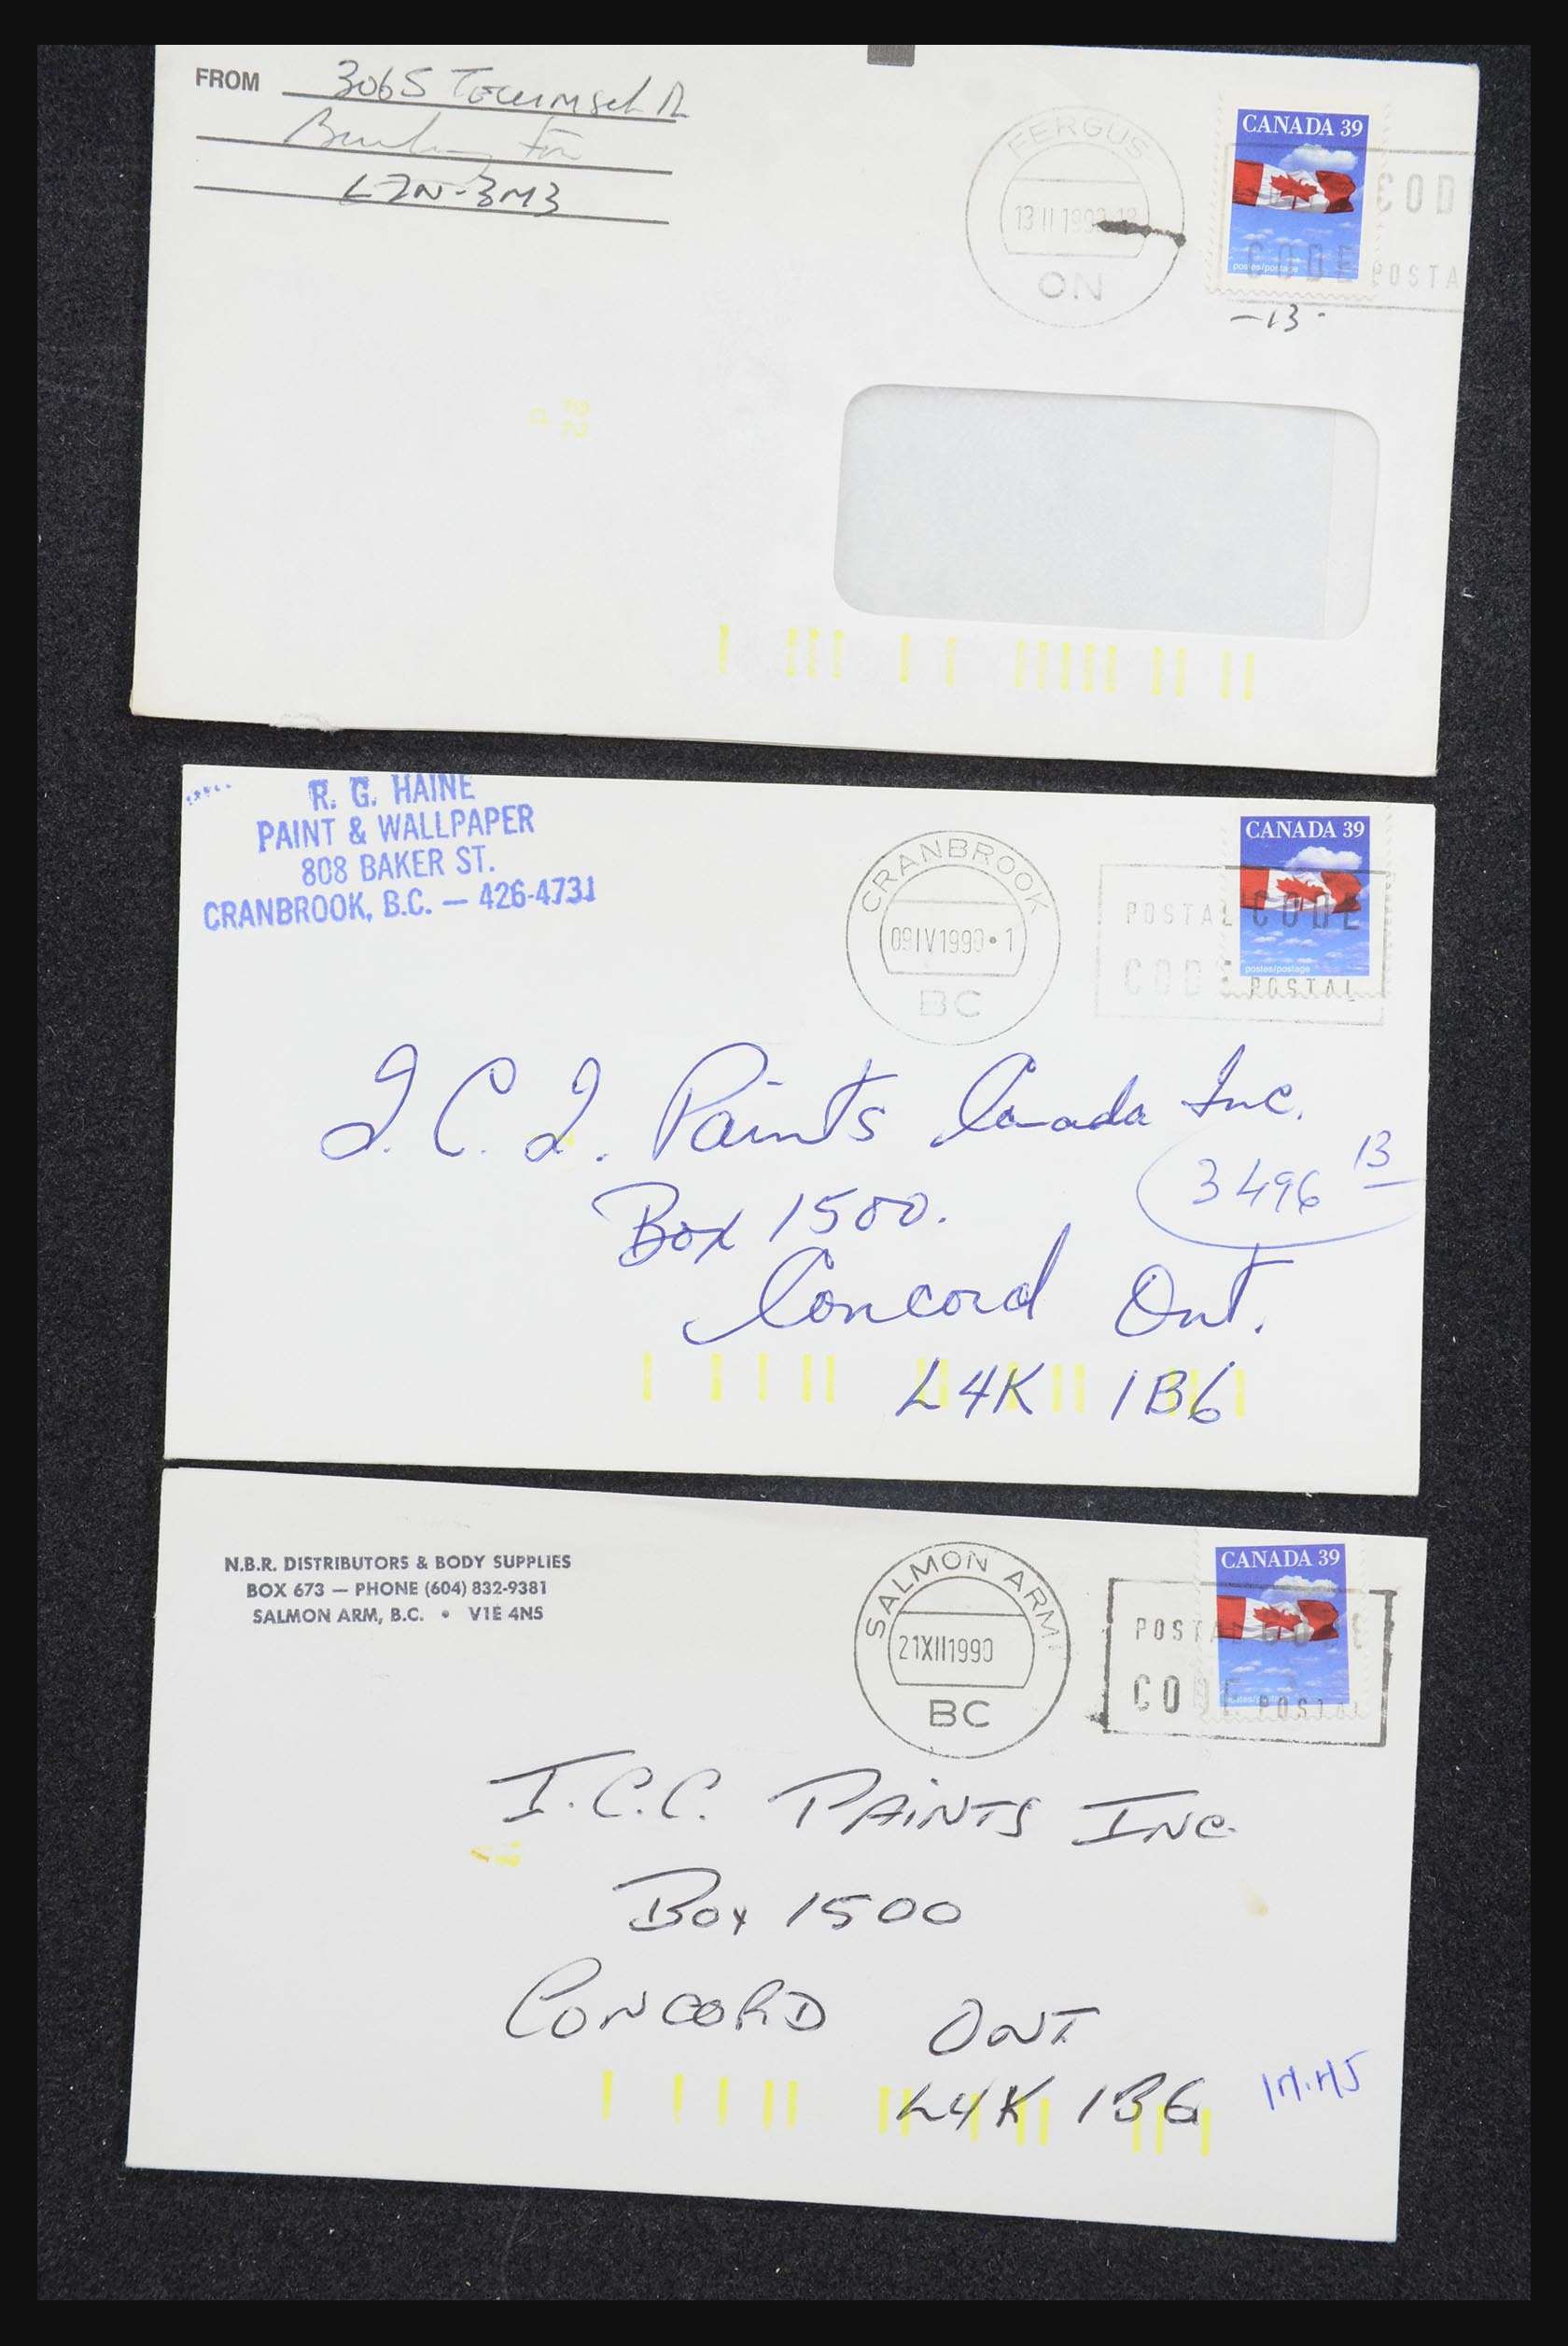 FROM 3065 Tecumseh
L7N-3M3
FERGUS
13 II 1990
ON
CANADA 39
postes/postage
CODE
CODE POSTA
-13-
R. G. HAINE
PAINT & WALLPAPER
808 BAKER ST.
CRANBROOK, B.C. — 426-4731
CRANBROOK
09 IV 1990 • 1
BC
CANADA 39
postes/postage
POSTAL CODE
CODE POSTAL
I.C.I. Paints Canada Inc.
3496 13
Box 1500.
Concord Ont.
L4K 1B6
N.B.R. DISTRIBUTORS & BODY SUPPLIES
BOX 673 — PHONE (604) 832-9381
SALMON ARM, B.C. • V1E 4N5
SALMON ARM
21 XII 1990
BC
CANADA 39
postes/postage
POSTAL CODE
CODE POSTAL
I.C.C. PAINTS INC.
Box 1500
CONCORD ONT
L4K 1B6